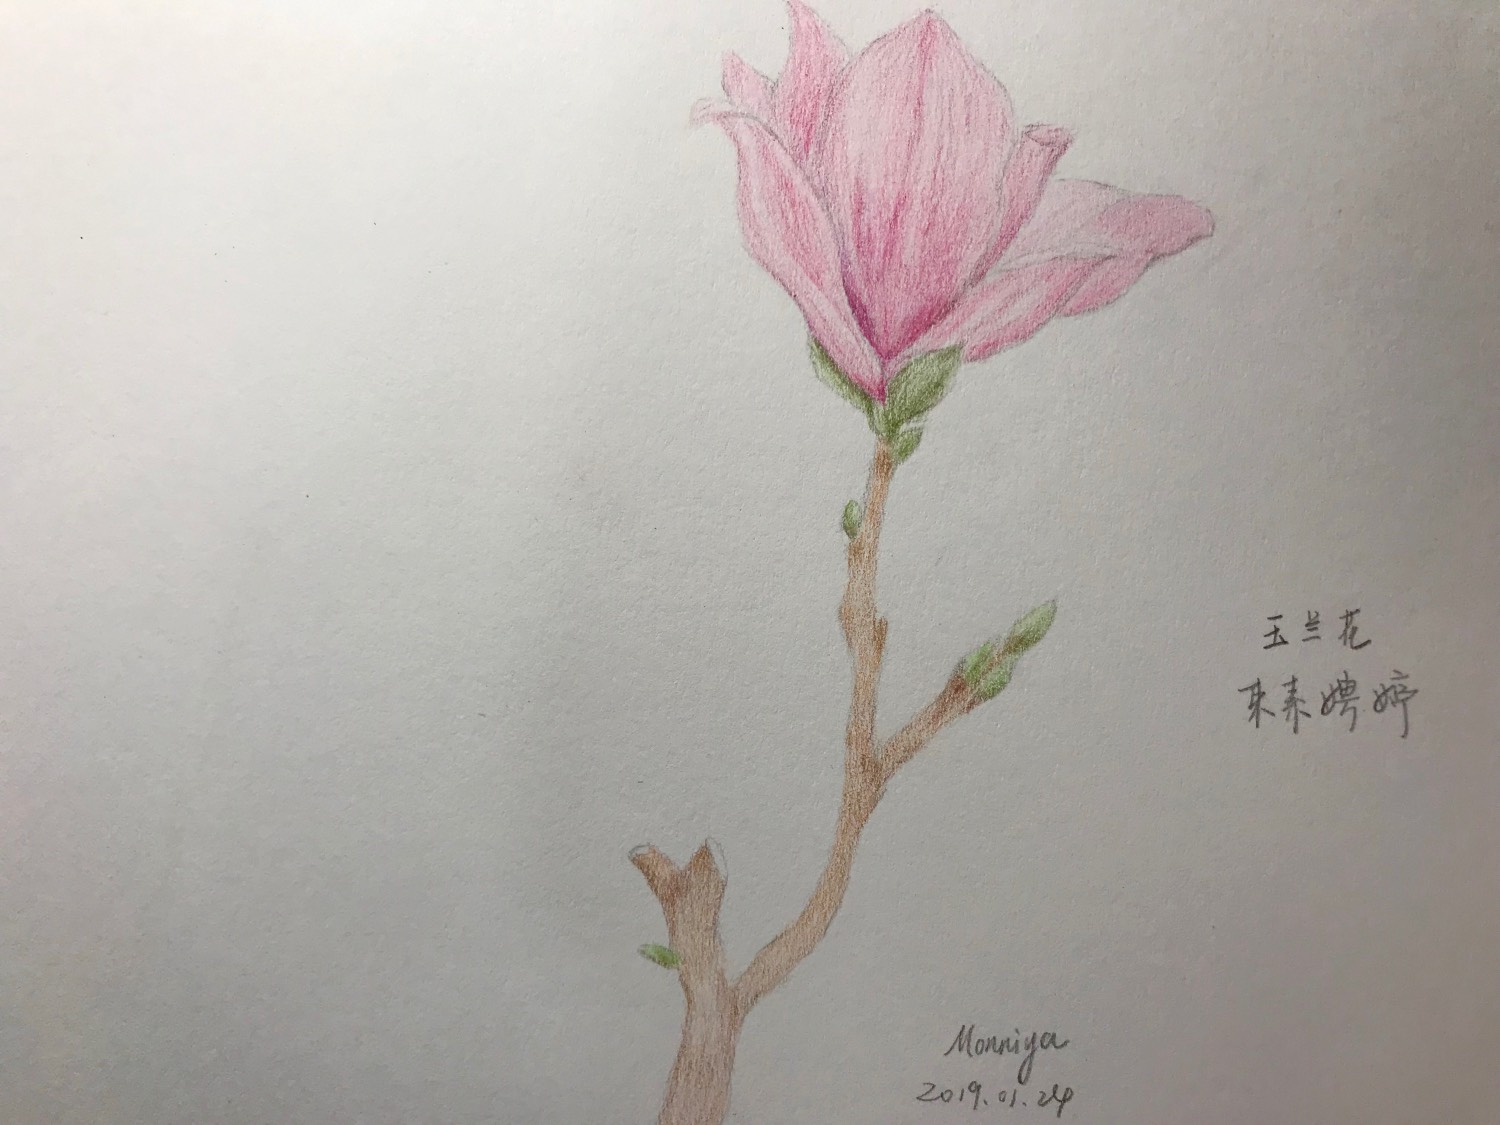 玉兰花
束素娉婷
Monniya
2019.01.24